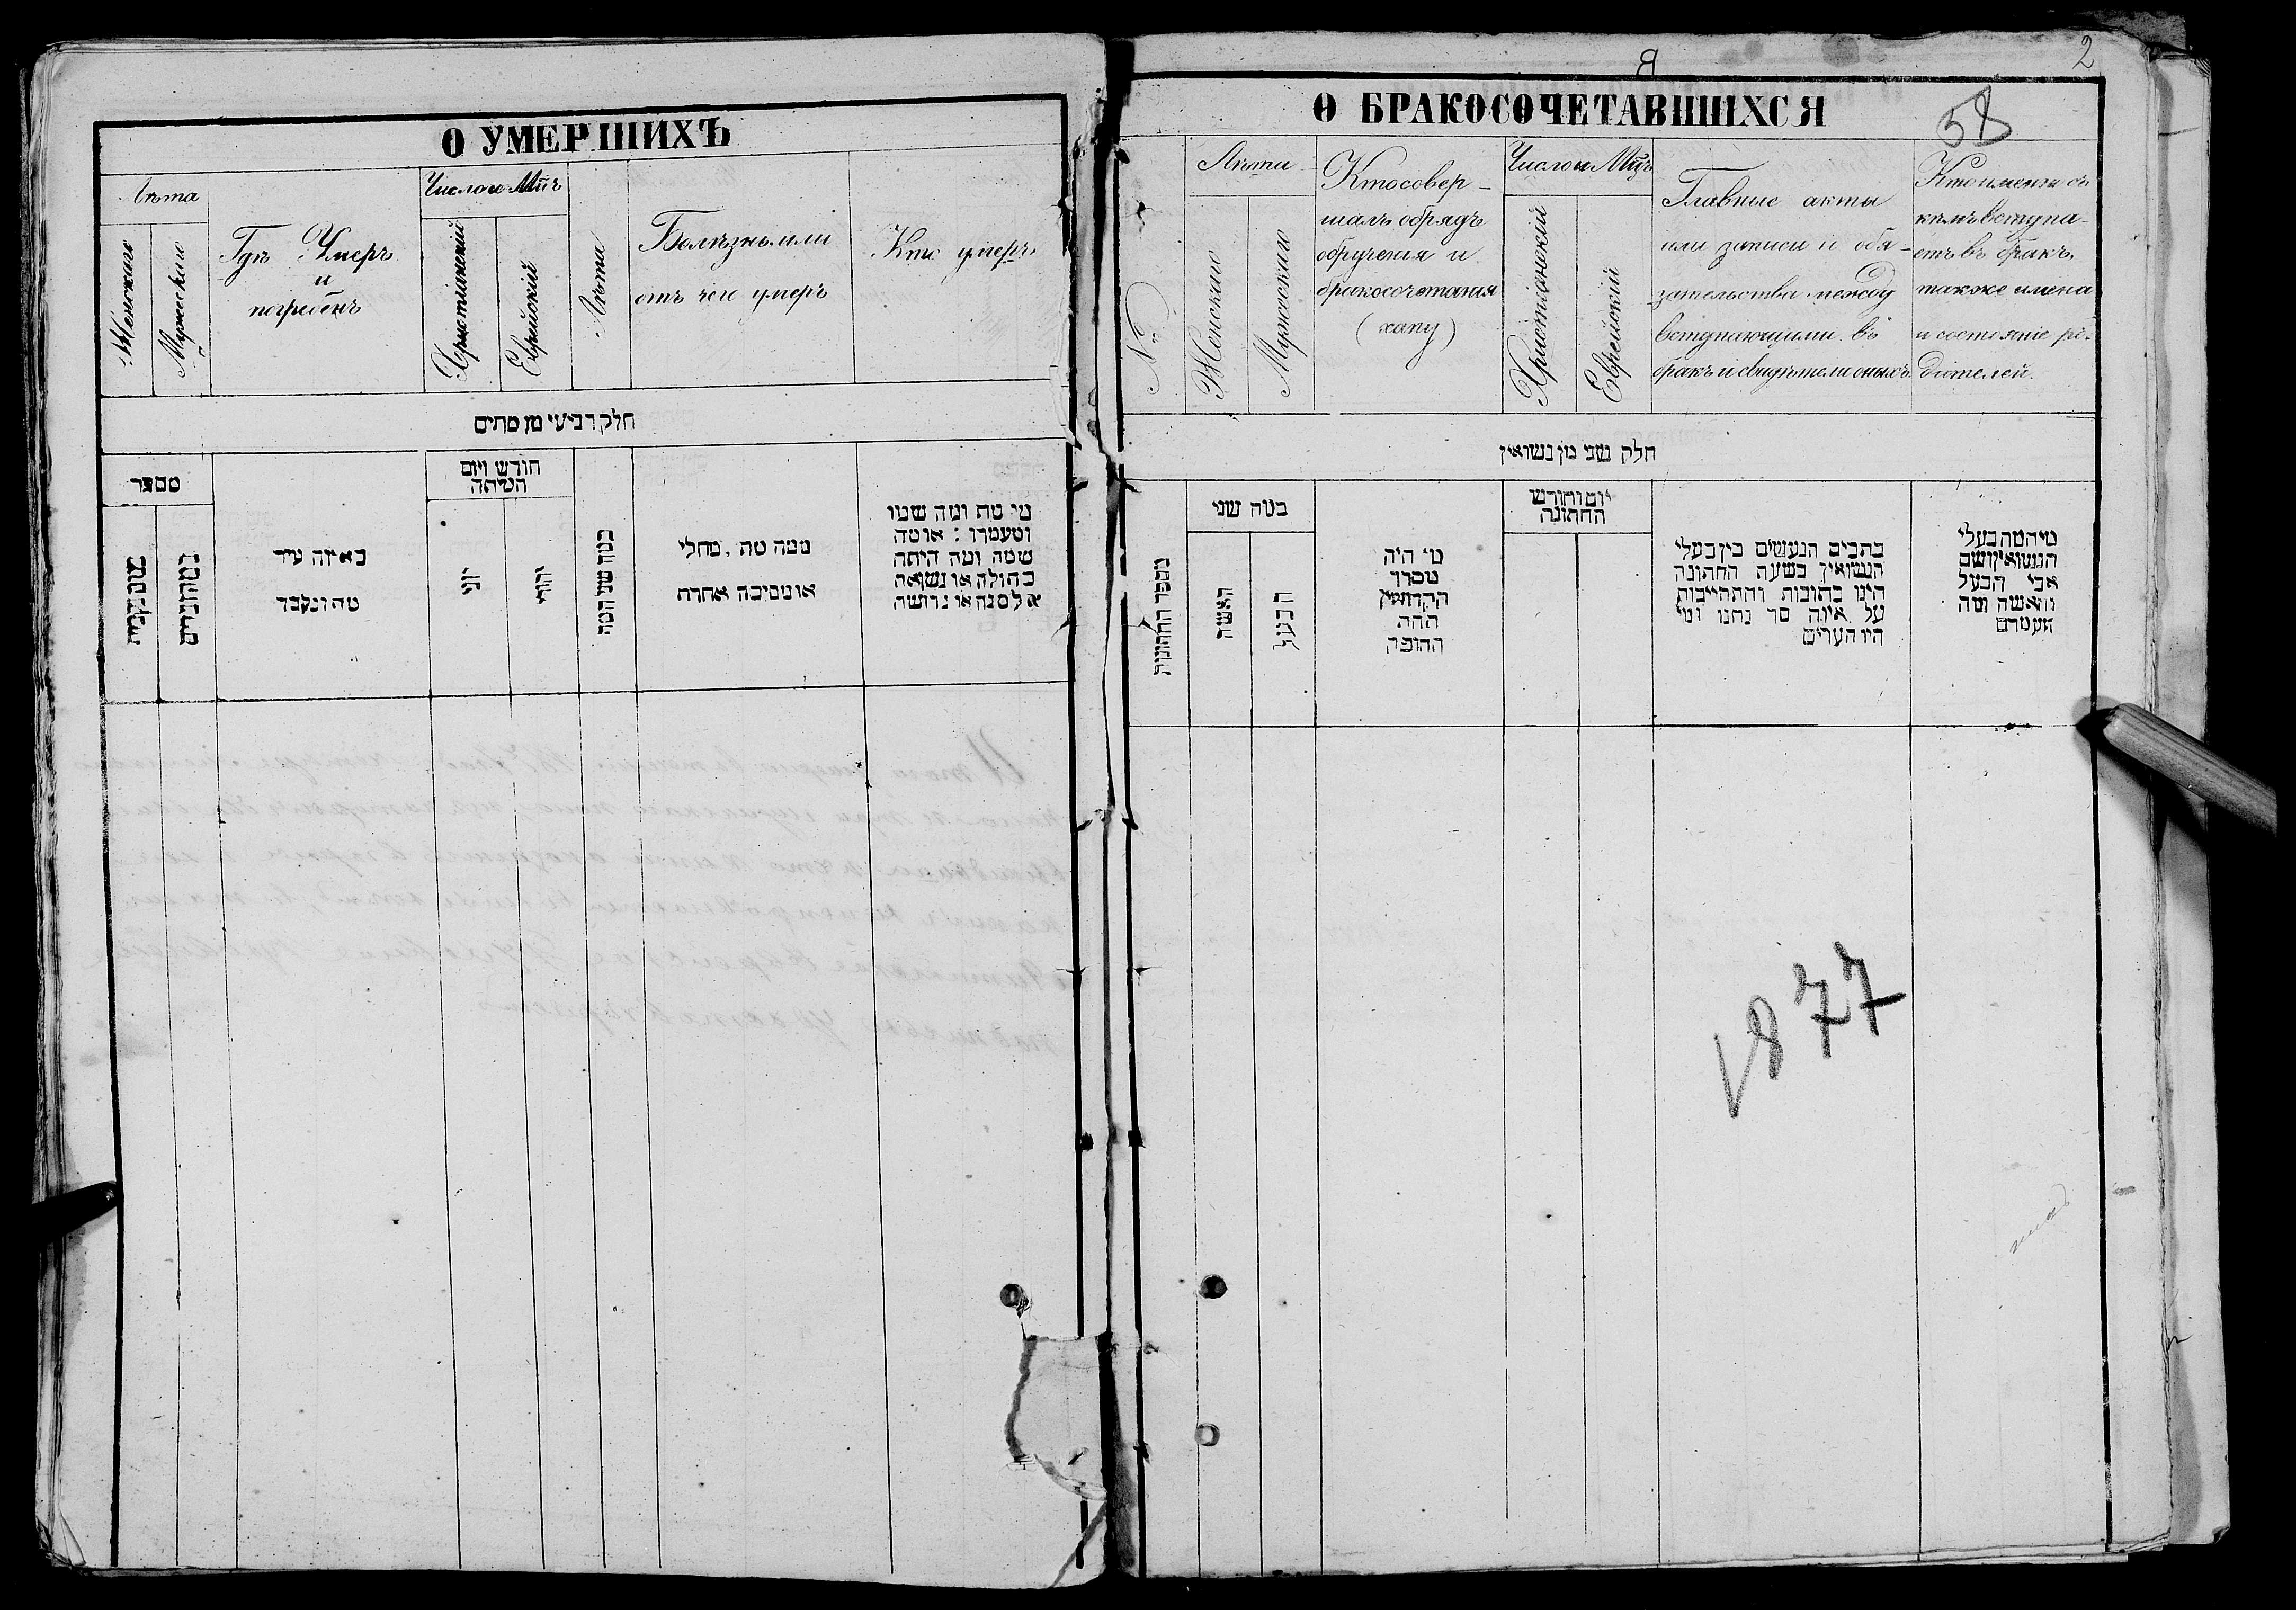 О УМЕРШИХЪ
Лѣта
Женскаго
Мужескаго
Гдѣ Умеръ
и
погребенъ
Число и Мц҃ъ
Христіанскій
Еврейскій
Лѣта
Болѣзнь или
отъ чего умеръ
Кто умеръ
חלק רביעי מן מתים
מספר
באיזה עיר
מת ונקבר
חודש ויום
המיתה
יוני
יהודי
ממה מת, מחלי
או מסיבה אחרת
מי מת ומה שמו
ומעמדו : או מה
שמה ומה היתה
בתולה או נשואה
אלמנה או גרושה
2
Я
О БРАКОСОЧЕТАВШИХСЯ
58
№
Лѣта
Женскаго
Мужескаго
Кто совер-
шалъ обрядъ
обрученія и
бракосочетания
(хапу)
Число и Мц҃ъ
Христіанскій
Еврейскій
Главные акты
или записи и обя-
зательства между
вступающими въ
бракъ и свидѣтели оныхъ
Кто именно съ
кѣмъ вступа-
етъ въ бракъ,
также имена
и состояніе ро-
дителей.
חלק שני מן נשואין
מספר החתונות
במה שני
האשה
הבעל
מי היה
מסדר
הקדושין
תחת
החופה
יום וחודש
החתונה
כתבים הנעשים בין בעלי
הנשואין בשעת החתונה
היינו כתובות והתחייבות
על איזה סך נתנו ומי
היו העדים
מי המה בעלי
הנשואין ושם
אבי הבעל
והאשה ומה
מעמדם
1877